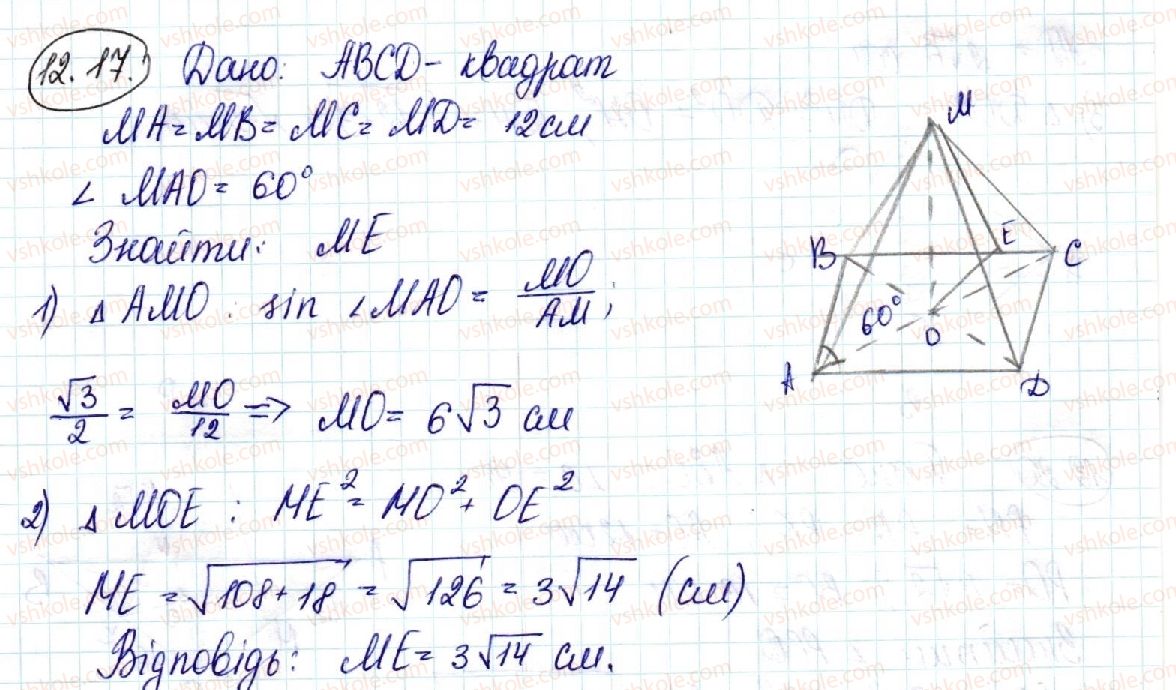 12.17. Дано: ABCD - квадрат
MA = MB = MC = MD = 12 см
∠ MAO = 60°
Знайти: ME
1) △ AMO : sin ∠MAO = MO/AM ;
√3/2 = MO/12 => MO = 6√3 см
2) △ MOE : ME² = MO² + OE²
ME = √108+18 = √126 = 3√14 (см)
Відповідь: ME = 3√14 см.
M
B
E
C
60°
O
A
D
vshkole.com